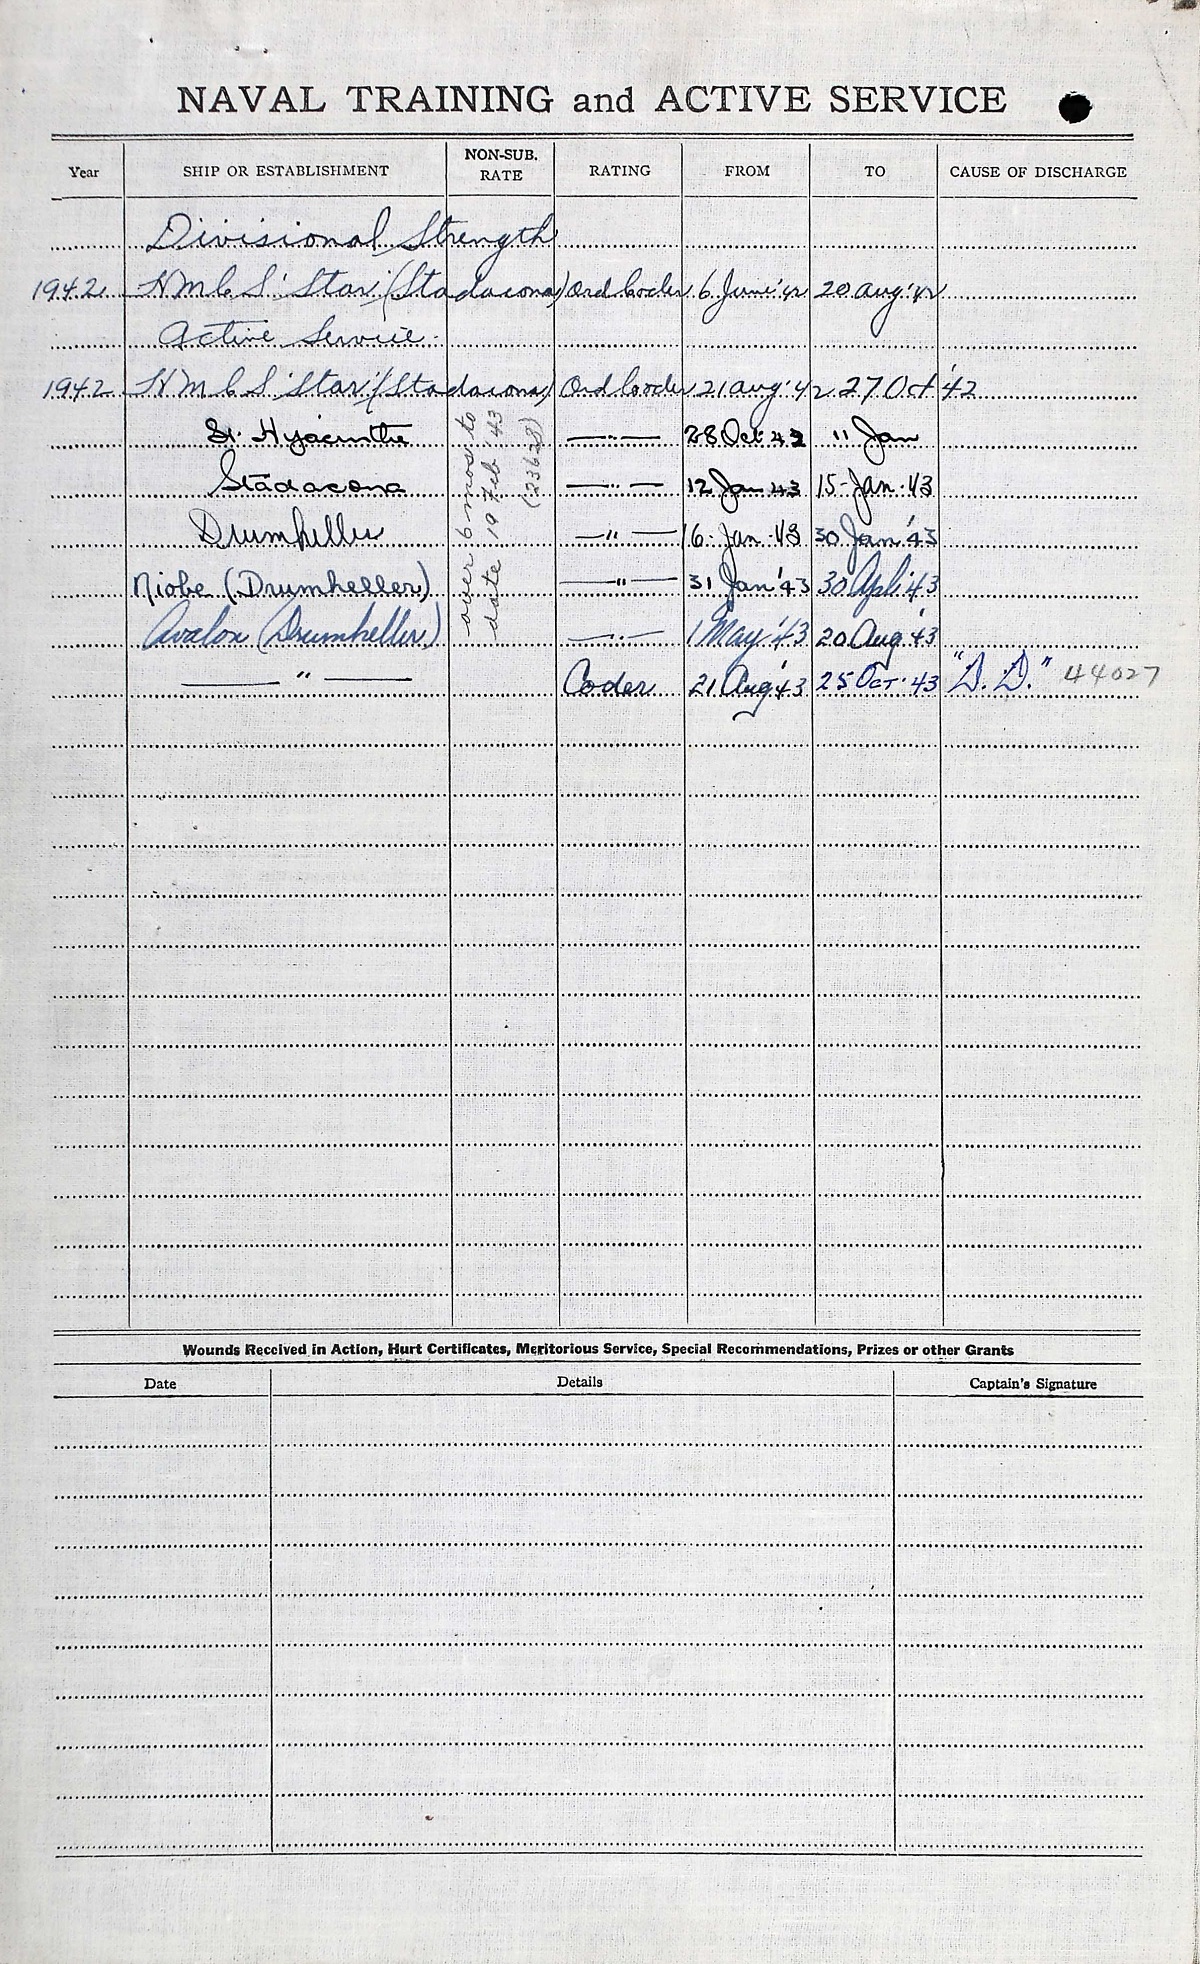 NAVAL TRAINING and ACTIVE SERVICE
Year SHIP OR ESTABLISHMENT NON-SUB. RATE RATING FROM TO CAUSE OF DISCHARGE
Divisional Strength
1942 HMCS 'Star' (Stadacona) Ord Coder 6 June '42 20 Aug '42
Active Service.
1942 HMCS 'Star' (Stadacona) Ord Coder 21 Aug '42 27 Oct '42
St. Hyacinthe —"— 28 Oct 42 11 Jan
Stadacona —"— 12 Jan 43 15 Jan. 43
Drumheller —"— 16 Jan. 43 30 Jan '43
Niobe (Drumheller) —"— 31 Jan '43 30 Apl '43
Avalon (Drumheller) —"— 1 May '43 20 Aug '43
—"— Coder 21 Aug '43 25 Oct. 43 "D.D." 44027
over 6 mos to
date 19 Feb '43
(23628)
Wounds Received in Action, Hurt Certificates, Meritorious Service, Special Recommendations, Prizes or other Grants
Date Details Captain's Signature